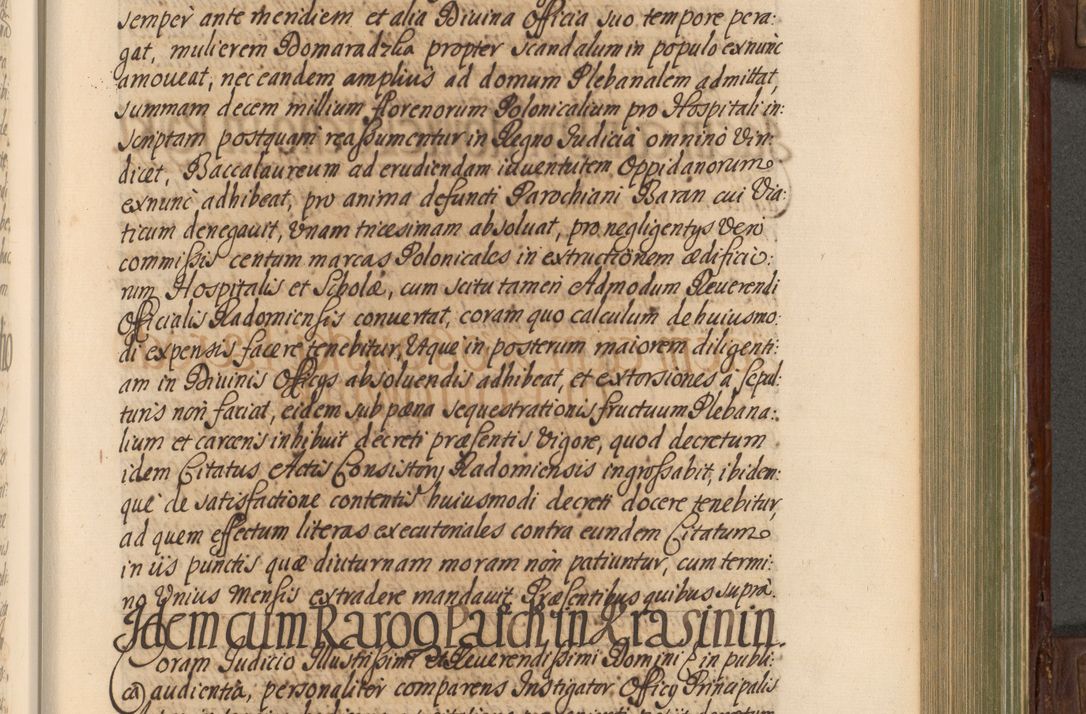 semper ante meridiem et alia Divina Officia suo tempore pera:
gat, mulierem Domaradzka propter scandalum in populo exnunc
amoueat, nec eandem amplius ad domum Plebanalem admittat,
summam decem millium florenorum Polonicalium pro Hospitali in:
scriptam postquam reassumentur in Regno Judicia omnino Vin:
dicet, Baccalaureum ad erudiendam iuuentutem Oppidanorum
exnunc adhibeat, pro anima defuncti Parochiani Baran cui Via:
ticum denegauit, Vnam tricesimam absoluat, pro negligentys Vero
commissis centum marcas Polonicales in extructionem ædificio:
rum Hospitalis et Scholæ, cum scitu tamen Admodum Reuerendi
Officialis Radomiensis conuertat, coram quo calculum de huiusmo:
di expensis facere tenebitur, Vtque in posterum maiorem diligenti:
am in Diuinis Officys absoluendis adhibeat, et extorsiones a sepul:
turis non faciat, eidem sub pæna sequestrationis fructuum Plebana:
lium et carceris inhibuit decreti præsentis Vigore, quod decretum
idem Citatus Actis Consistory Radomiensis ingrossabit, ibidem:
que de satisfactione contentis huiusmodi decreti docere tenebitur,
ad quem effectum literas executoriales contra eundem Citatum
in iis punctis quæ diuturnam moram non patiuntur, cum termi:
no Vnius mensis extradere mandauit. Præsentibus quibus supra.
Idem cum Rarog Paroch in Krasinin.
Coram Judicio Illustrissimi et Reuerendissimi Domini in publi:
ca audientia, personaliter comparens Instigator Officy Principalis